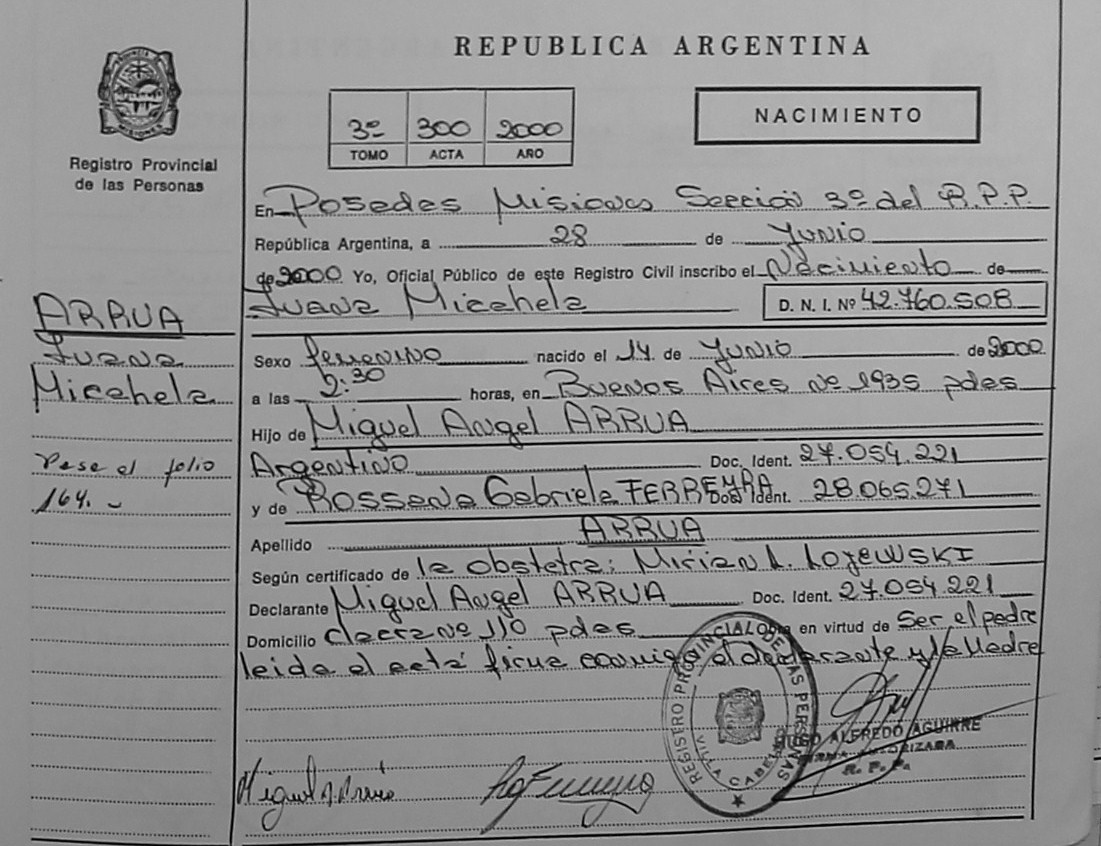 REPUBLICA ARGENTINA
PROVINCIA
MISIONES
Registro Provincial
de las Personas
3º 300 2000
TOMO ACTA AÑO
NACIMIENTO
En Posadas Misiones Sección 3º del R.P.P.
República Argentina, a 28 de Junio
de 2000 Yo, Oficial Público de este Registro Civil inscribo el Nacimiento de
Juana Micahela D. N. I. Nº 42.760.508
ARRUA
Juana
Micahela
Pase al folio
164.-
Sexo femenino nacido el 14 de Junio de 2000
a las 2:30 horas, en Buenos Aires Nº 1935 pdas
Hijo de Miguel Angel ARRUA
Argentino Doc. Ident. 27.054.221
y de Rossana Gabriela FERREYRA Doc. Ident. 28.065.271
Apellido ARRUA
Según certificado de la obstetra: Mirian L. Lojewski
Declarante Miguel Angel ARRUA Doc. Ident. 27.054.221
Domicilio chacra Nº 110 pdas Obra en virtud de Ser el padre
leida el acta firma conmigo el declarante y la Madre
REGISTRO PROVINCIAL DE LAS PERSONAS
VILLA CABELLO
HUGO ALFREDO AGUIRRE
FIRMA AUTORIZADA
R. P. P.